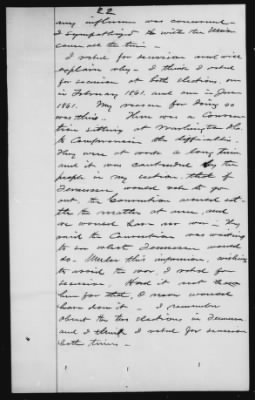 22
any influence was concerned -
I sympathized with the Union
cause all the time -
I voted for secession and will
explain why - I think I voted
for secession at both elections, one
in February 1861, and one in June
1861. My reason for doing so
was this. There was a Conven-
tion sitting at Washington
to Compromise the difficulties.
They were at work a long time
and it was contended by the
people in my section, that if
Tennessee would vote to go
out, the Convention would set-
tle the matter at once, and
we would have no war - They
said the Convention was waiting
to see what Tennessee would
do - Under this impression, wishing
to avoid the war, I voted for
secession. Had it not been
for that, I never would
have done it - I remember
about the two elections in Tennessee
and I think I voted for secession
both times -